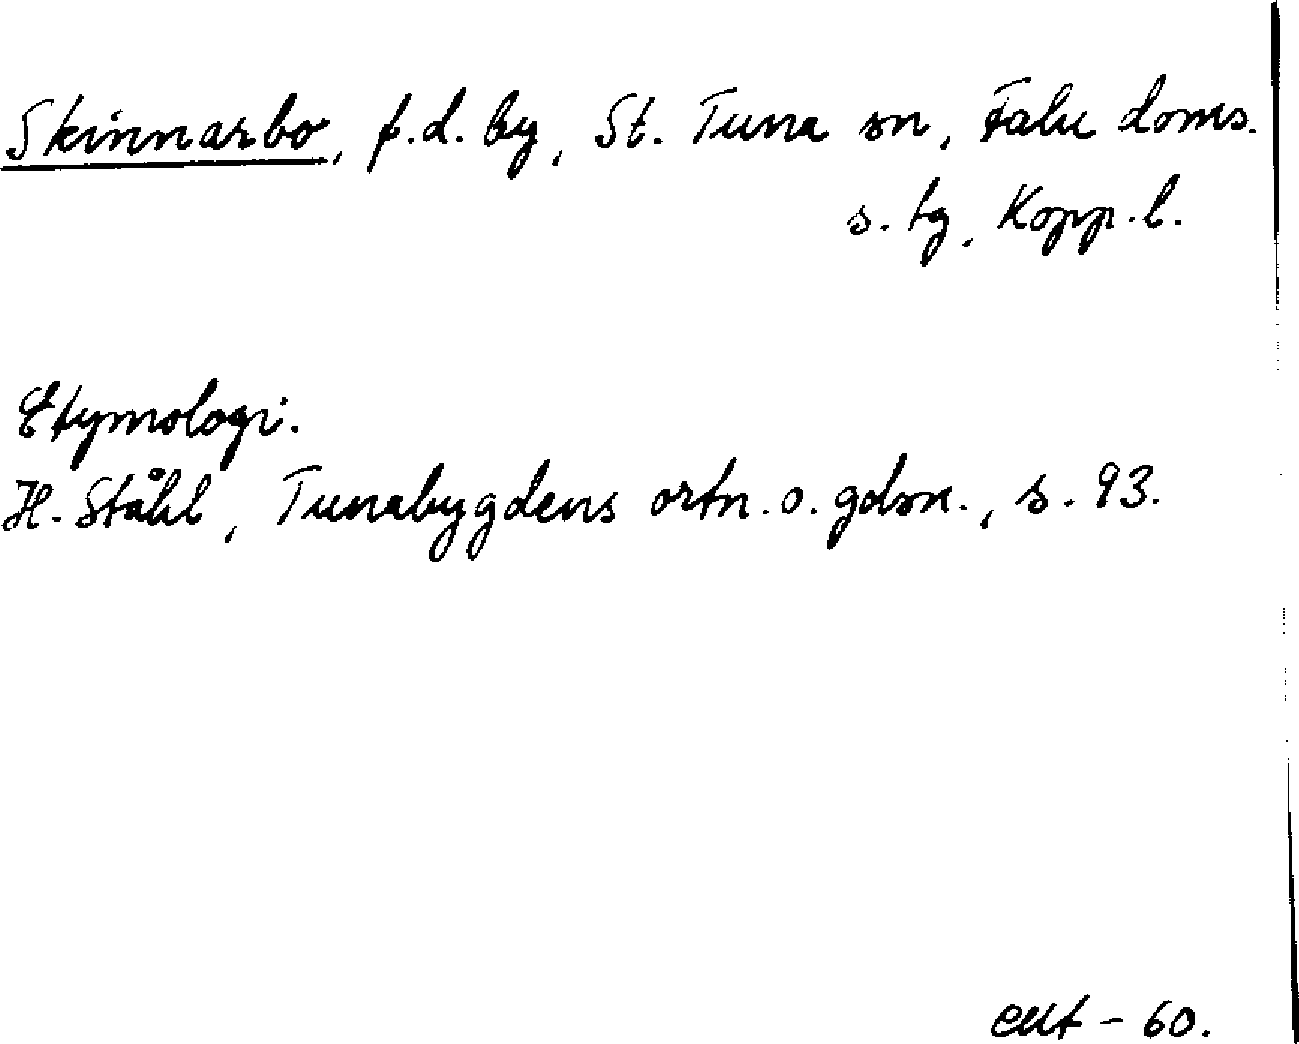 Skinnarbo, f.d. by, St. Tuna sn, Falu doms.
s. tg, Kopp. l.
Etymologi.
H. Ståhl, Tunabygdens ortn. o. gdsn., s. 93.
- 60.